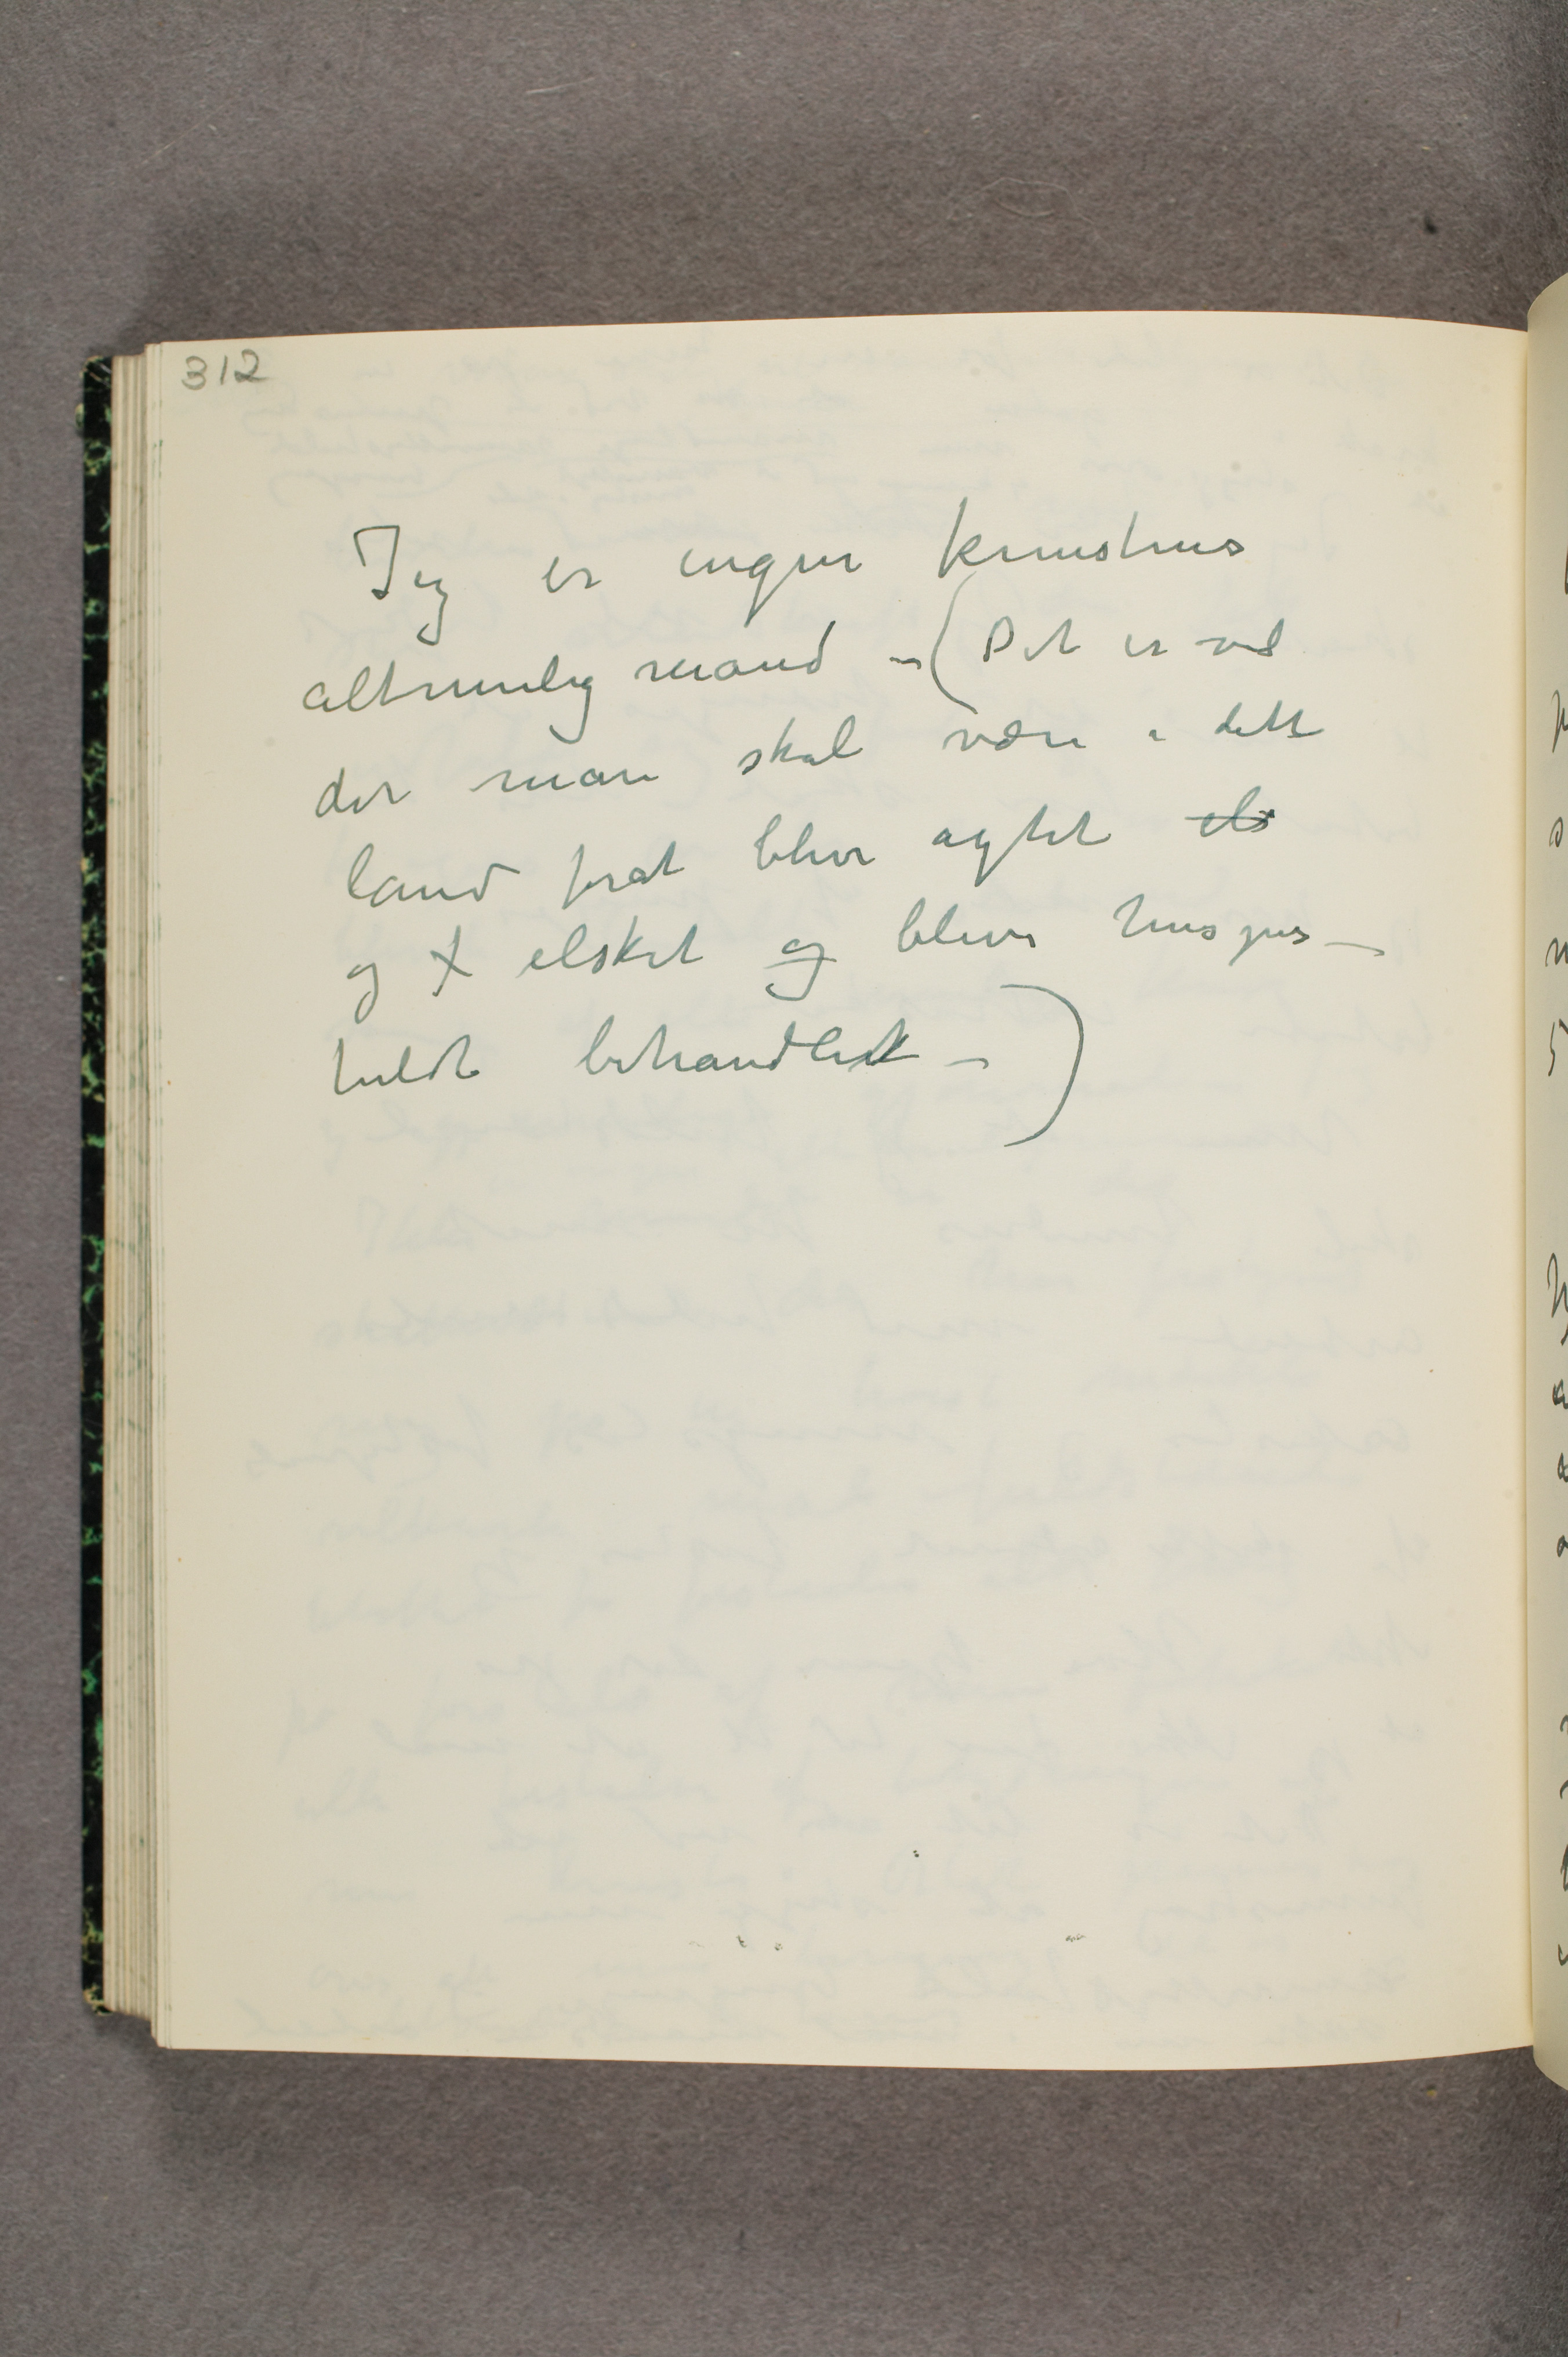 312
Jeg er ingen kunstens
altmulig mand – (Det er vel
der man skal være i dette
land forat blive agtet els
og elsket og blive hensyns–
fuldt behandlet – )